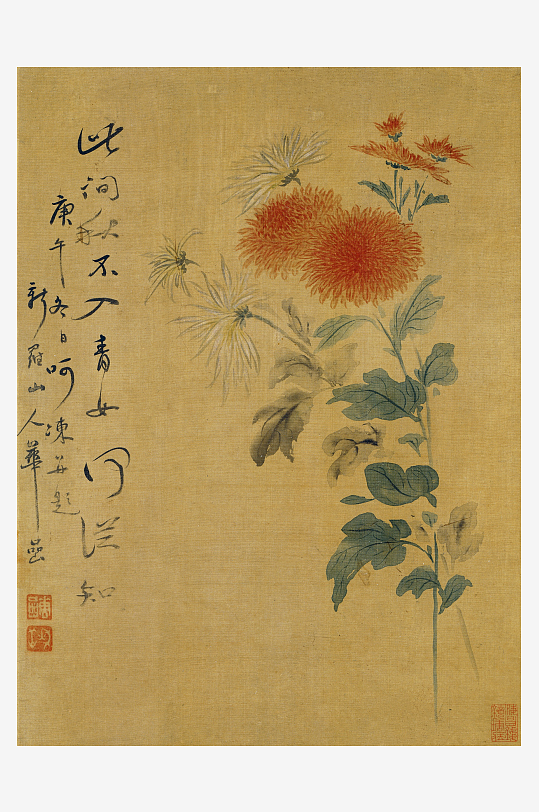 此間秋不入青女何從知
庚午冬日呵凍并題
新羅山人華喦